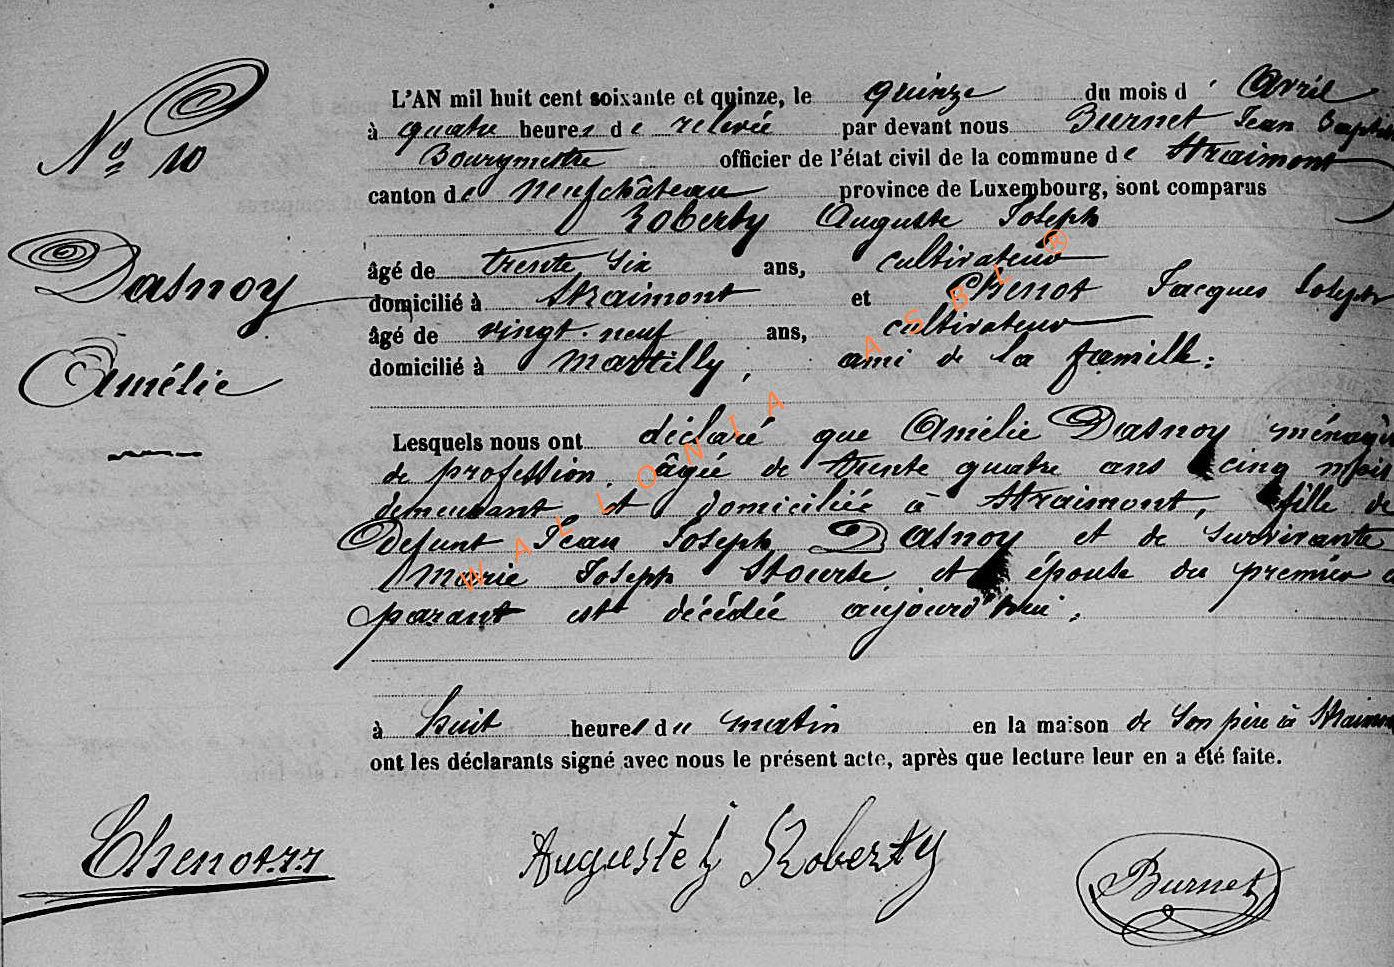 N° 10
Dasnoy
Amélie
L'AN mil huit cent soixante et quinze, le quinze du mois d' Avril
à quatre heures de relevée par devant nous Burnet Jean Baptis
Bourgmestre officier de l'état civil de la commune de Straimont
canton de Neufchâteau province de Luxembourg, sont comparus
Roberty Auguste Joseph
âgé de trente six ans, cultivateur
domicilié à Straimont et Chenot Jacques Joseph
âgé de vingt-neuf ans, cultivateur
domicilié à Martilly, ami de la famille:
Lesquels nous ont déclaré que Amélie Dasnoy ménagè
de profession, âgée de trente quatre ans cinq mois
demeurant et domiciliée à Straimont, fille de
Defunt Jean Joseph Dasnoy et de Survivante
Marie Joseph Stourte et épouse du premier c
parant est décédée aujourd'hui,
à huit heures du matin en la maison de son père à Straimo
ont les déclarants signé avec nous le présent acte, après que lecture leur en a été faite.
Chenot JJ Auguste J Roberty Burnet
WALLONIA ASBL ®